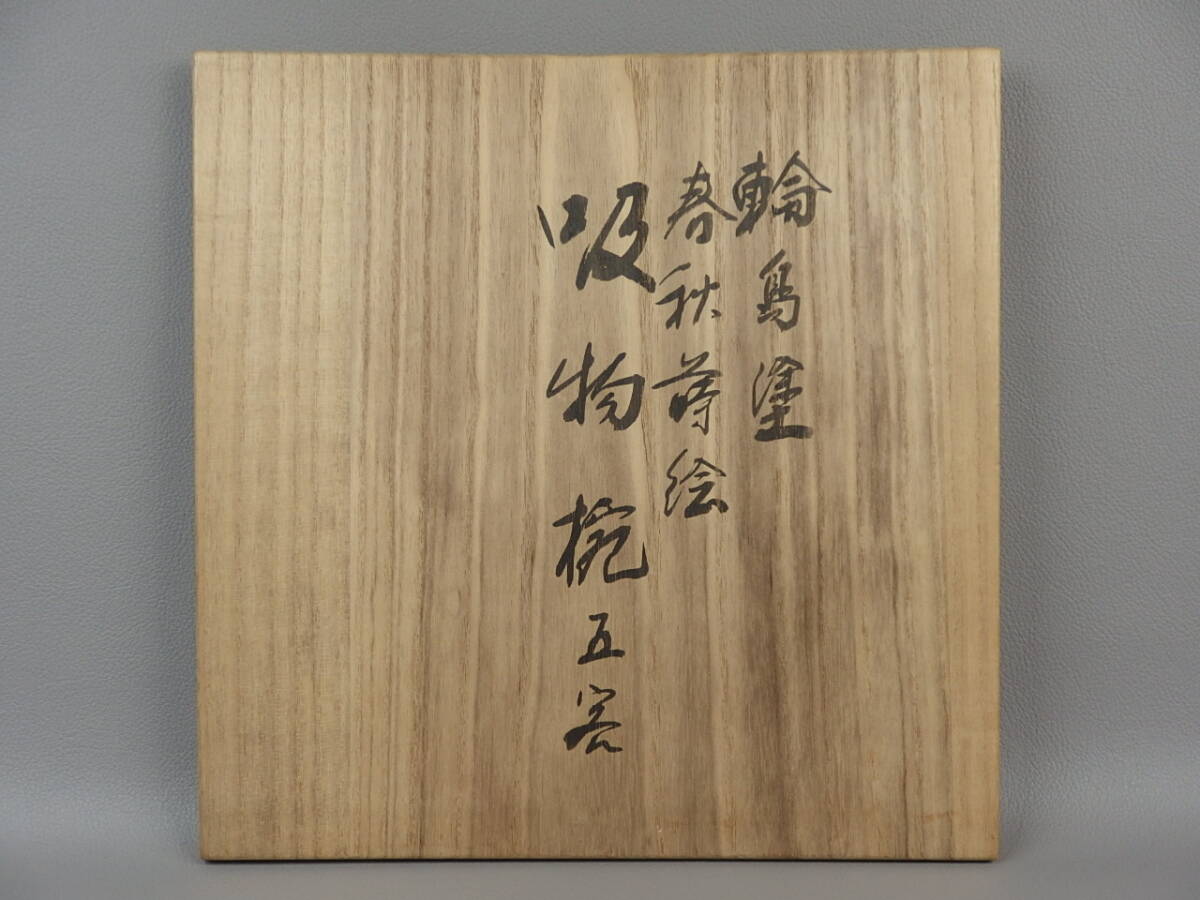 輪島塗
春秋蒔絵
吸物椀五客